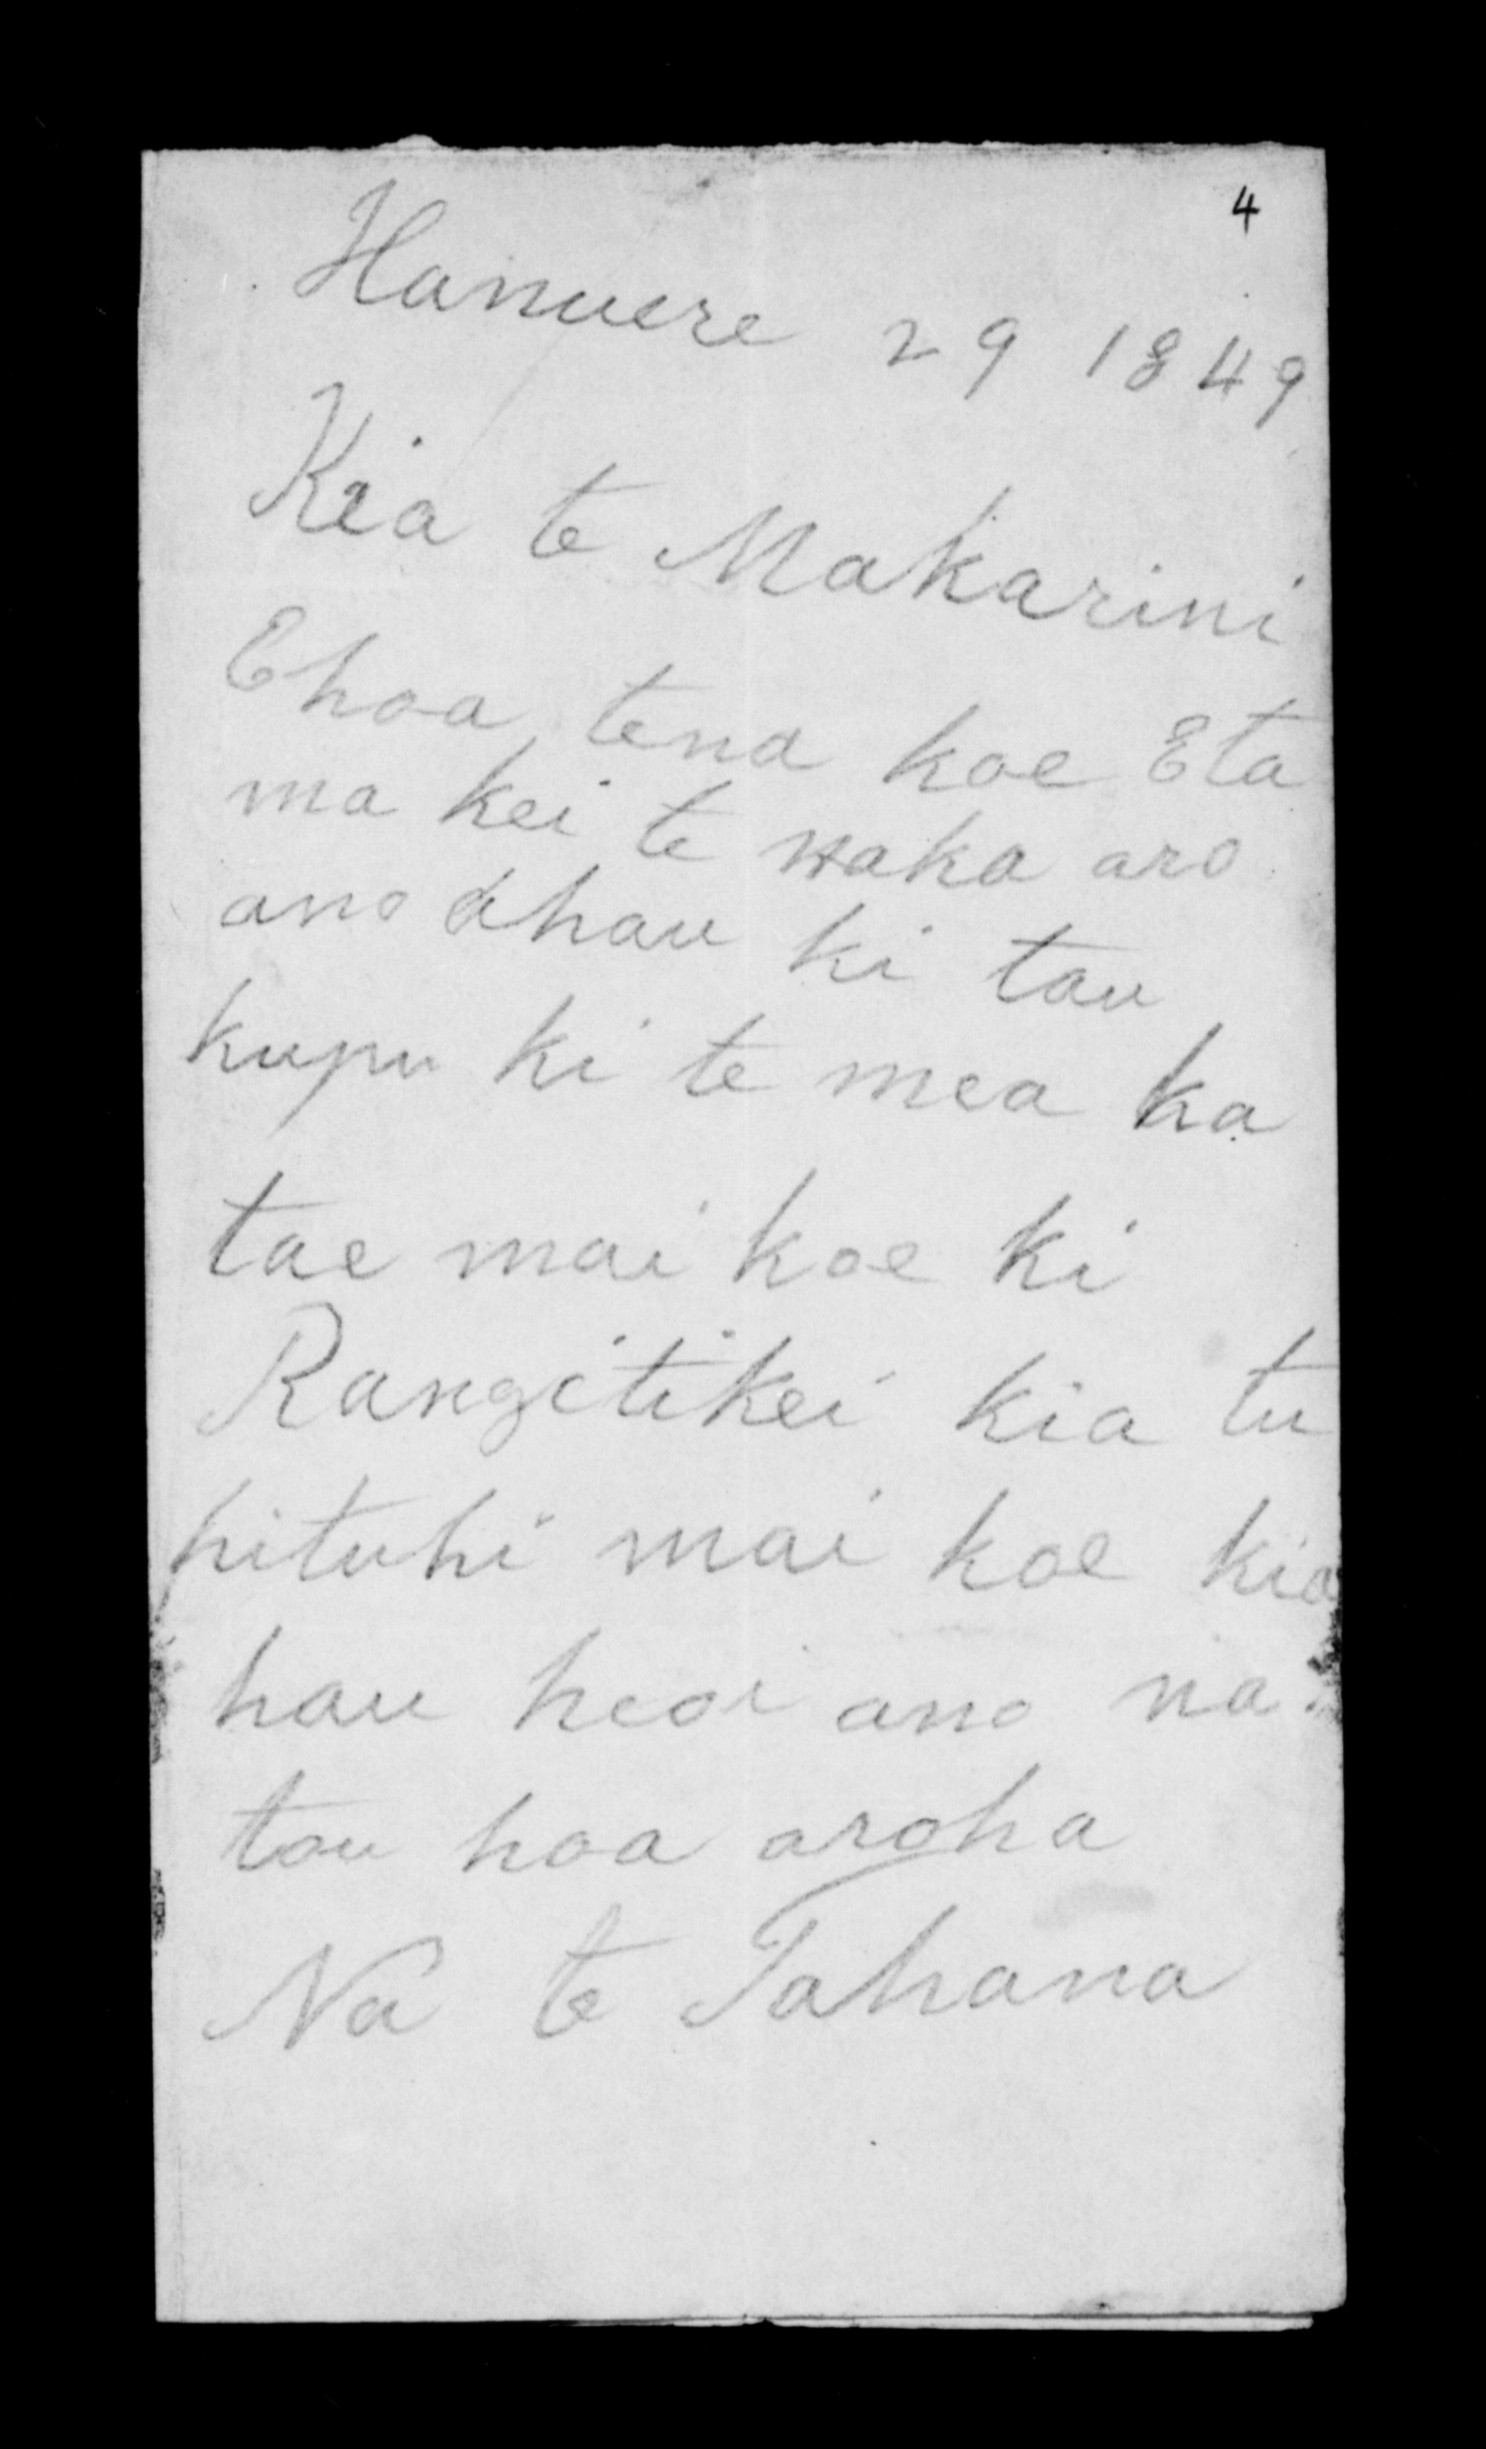 4
Hanuere 29 1849
Kia te Makarini
Ehoa tena koe Eta
ma kei te waka aro
ano ahau ki tau
kupu ki te mea ka
tae mai koe ki
Rangitikei kia tu
pituhi mai koe kia
hau heoi ano na
tou hoa aroha
Na te Tahana